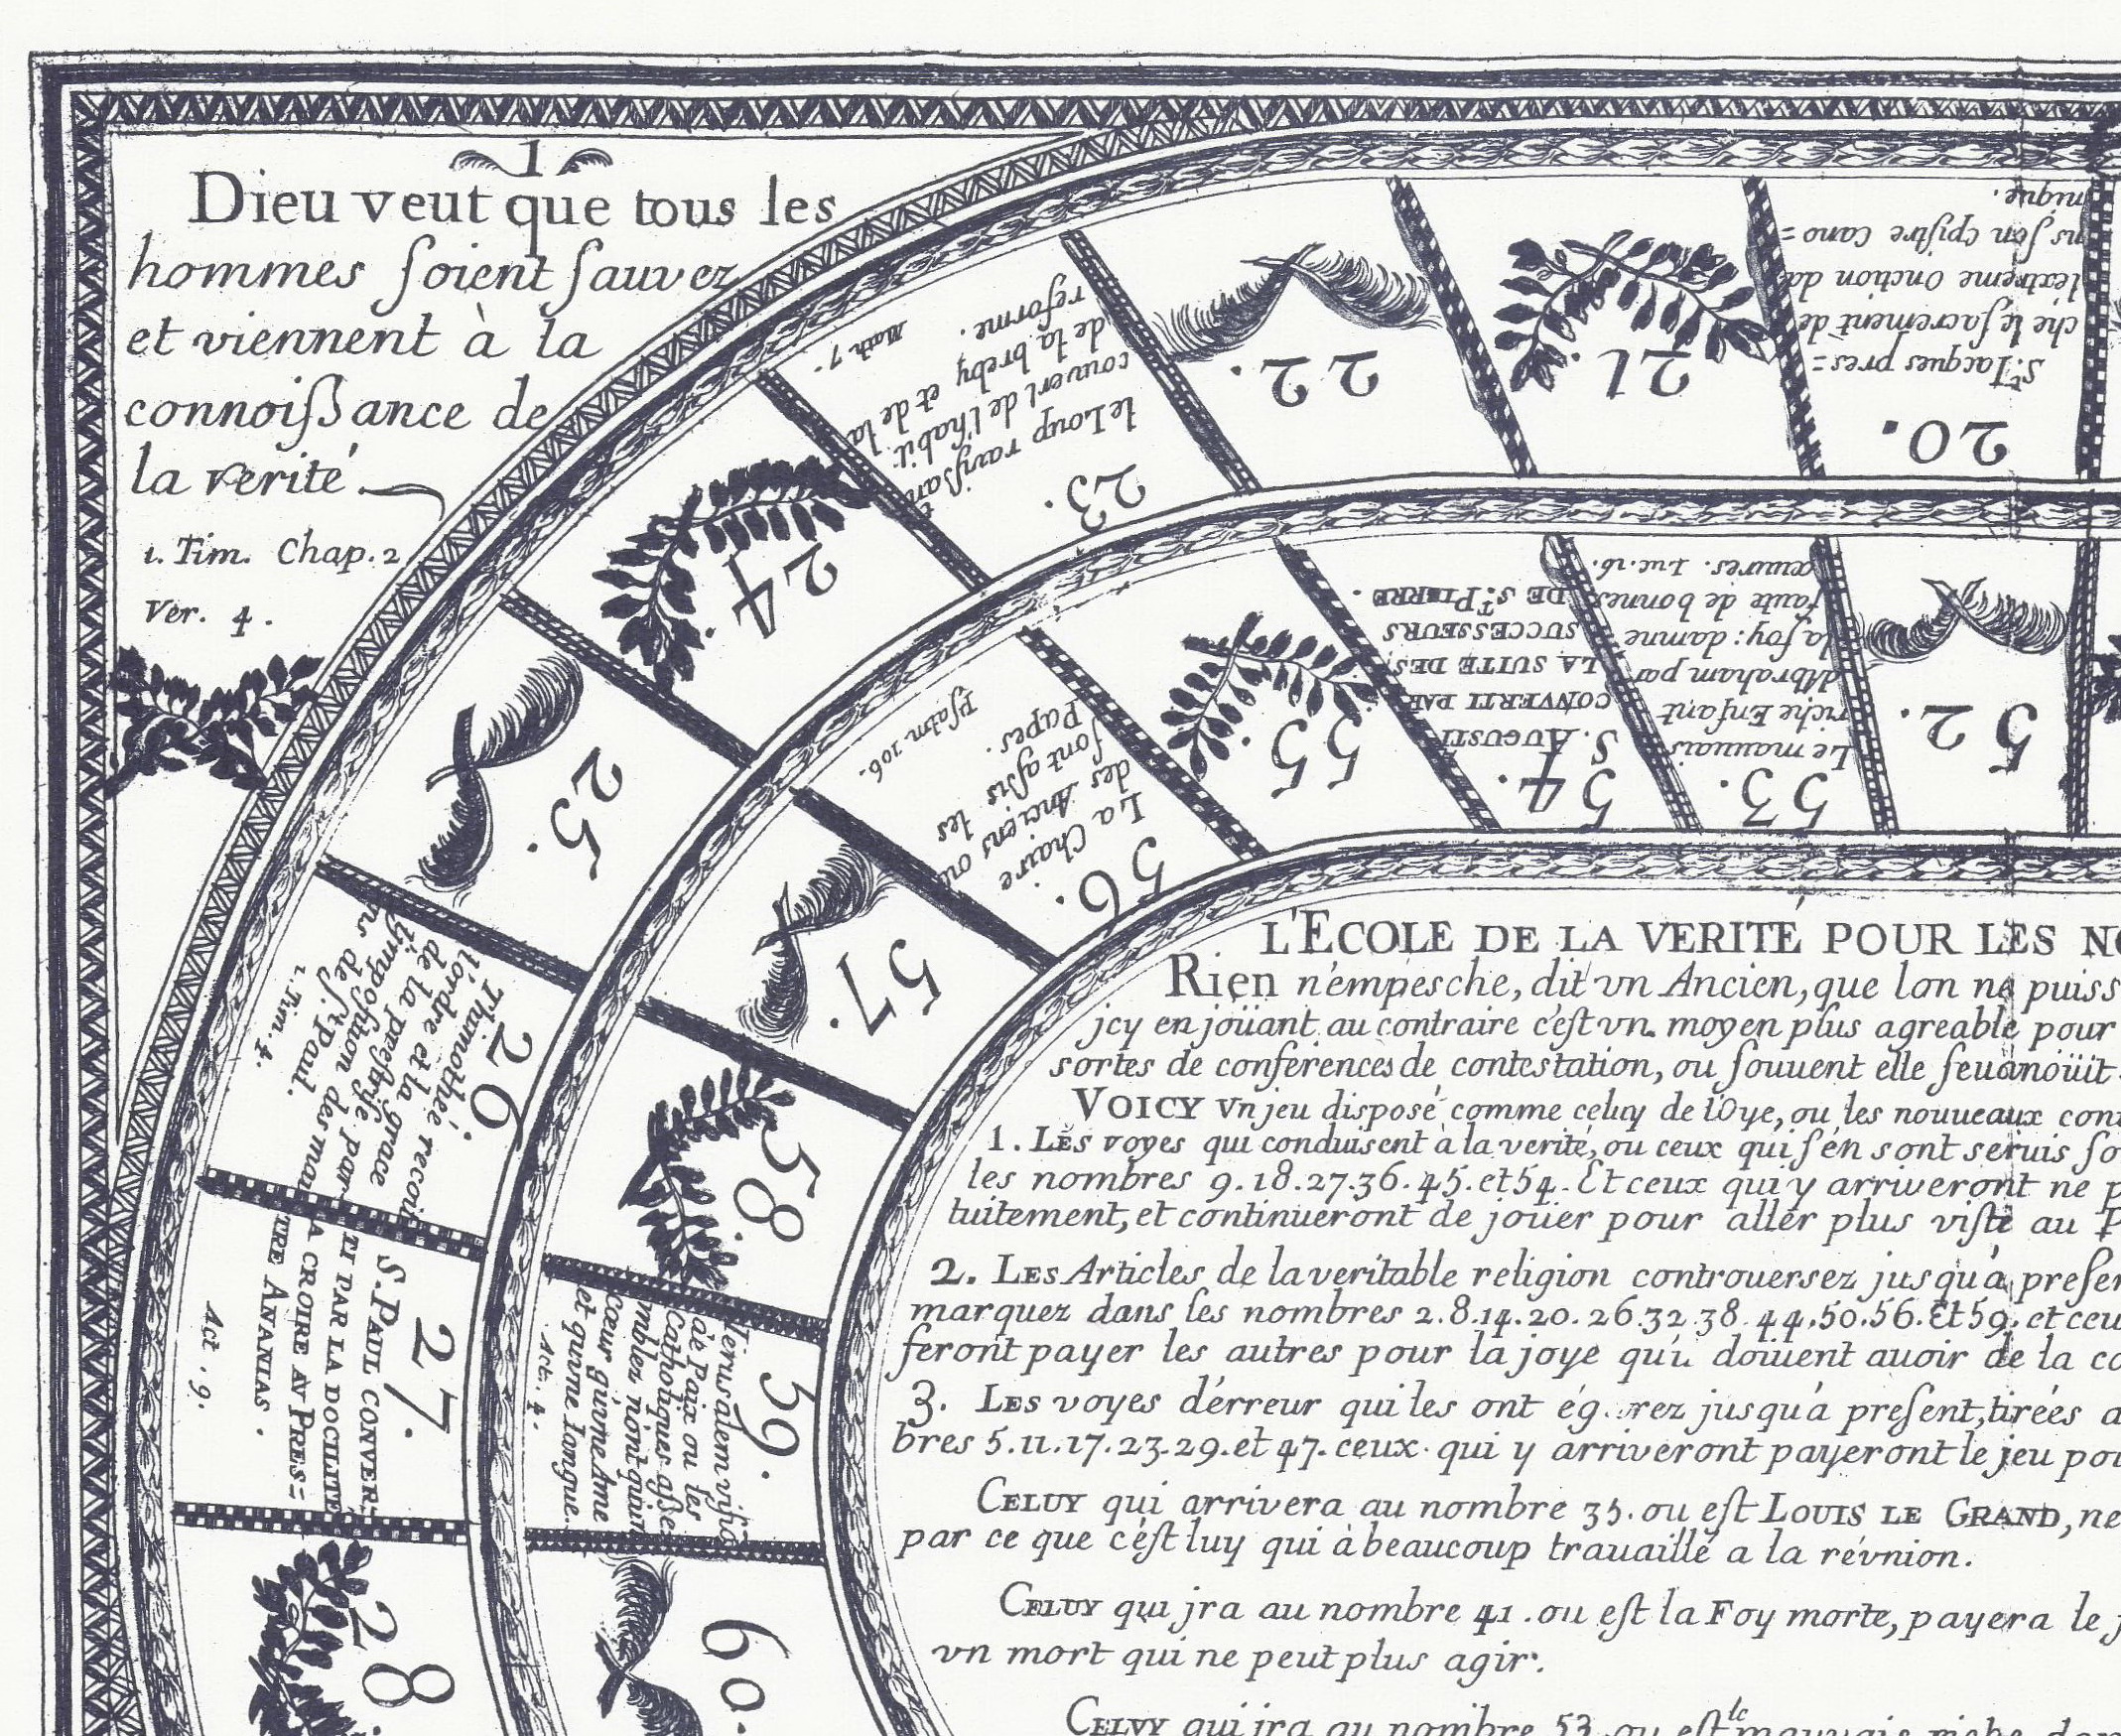 1
Dieu veut que tous les
hommes ſoient ſauvez
et viennent à la
connoiſſance de
la verité
1. Tim. Chap. 2
Ver. 4.
20.
St. Iacques pres=
ché le ſacrement de
lextreme Onction da
ns ſon epiſtre cano=
nique.
21.
22.
23.
le Loup raviſſant
couvert de l'habit
de la breby et de la
reforme.
Math 7.
24.
25.
26.
Thimothée recoit
l'ordre et la grace
de la preſtriſe par
l'impoſition des mai
ns de ſt. Paul.
1. Tim. 4.
27.
S. PAUL CONVER=
TI PAR LA DOCILITÉ
A CROIRE AV PRES=
TRE ANANIAS.
Act. 9.
28
52.
53.
Le mauuais
riche Enfant
d'Abraham par
la foy: damne
faute de bonnes
œuures. Luc. 16.
54.
S. AUGUSTI
CONVERTI PAR
LA SUITE DES
SUCCESSEURS
DE ST. PIERRE.
55.
56.
La Chaire
des Anciens ou
ſont aſſis les
Papes.
Pſalm 106.
57.
58.
59.
Ierusalem viſiō
de Paix ou les
Catholiques aſſe
mblez n'ont qu'un
cœur qu'vne Ame
et qu'vne langue.
Act. 4.
60.
L'ECOLE DE LA VERITÉ POUR LES NO
Rien n'empesche, dit vn Ancien, que lon ne puiss
jcy en joüant au contraire c'eſt vn moyen plus agreable pour
sortes de conferences de contestation, ou ſouuent elle ſeuanoüit
VOICY vn jeu disposé comme celuy de l'Oye, ou les nouueaux con
1. LES voyes qui conduisent à la verité, ou ceux qui ſ'en sont seruis ſo
les nombres 9.18.27.36.45.et 54. Et ceux qui y arriveront ne p
tuitement, et continueront de joüer pour aller plus viſte au P
2. LES Articles de la veritable religion controuersez jusqu'a preſen
marquez dans les nombres 2.8.14.20.26.32.38.44.50.56. Et 59. et ceu
feront payer les autres pour la joye qu'i doiuent auoir de la co
3. LES voyes d'érreur qui les ont ég rez jusqu'á preſent, tirées a
bres 5.11.17.23.29. et 47. ceux qui y arriveront payeront le jeu pou
CELUY qui arrivera au nombre 35. ou eſt LOUIS LE GRAND, ne
par ce que c'éſt luy qui à beaucoup trauaillé a la révnion.
CELUY qui jra au nombre 41. ou eſt la Foy morte, payera le j
vn mort qui ne peut plus agir.
CELVY qui jra au nombre 53 ou eſt le mauuais riche